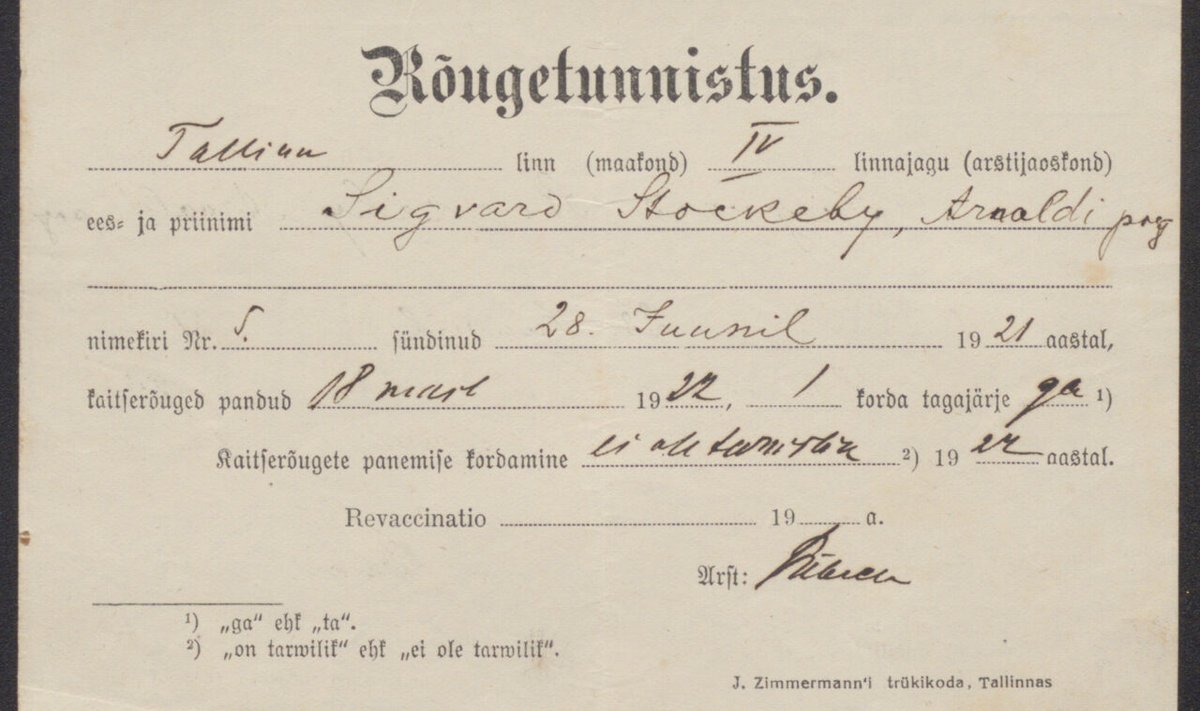 Rõugetunnistus.
Tallinn linn (maakond) IV linnajagu (arstijaoskond)
ees- ja priinimi Sigvard Stockeby, Arnoldi poeg
nimekiri Nr. 5. sündinud 28. Juunil 1921 aastal,
kaitserõuged pandud 18 1922, 1 korda tagajärje ga ¹)
Kaitserõugete panemise kordamine ei ole tarwilik ²) 1922 aastal.
Revaccinatio 19 a.
Arst:
¹) „ga“ ehk „ta“.
²) „on tarwilik“ ehk „ei ole tarwilik“.
J. Zimmermann'i trükikoda, Tallinnas